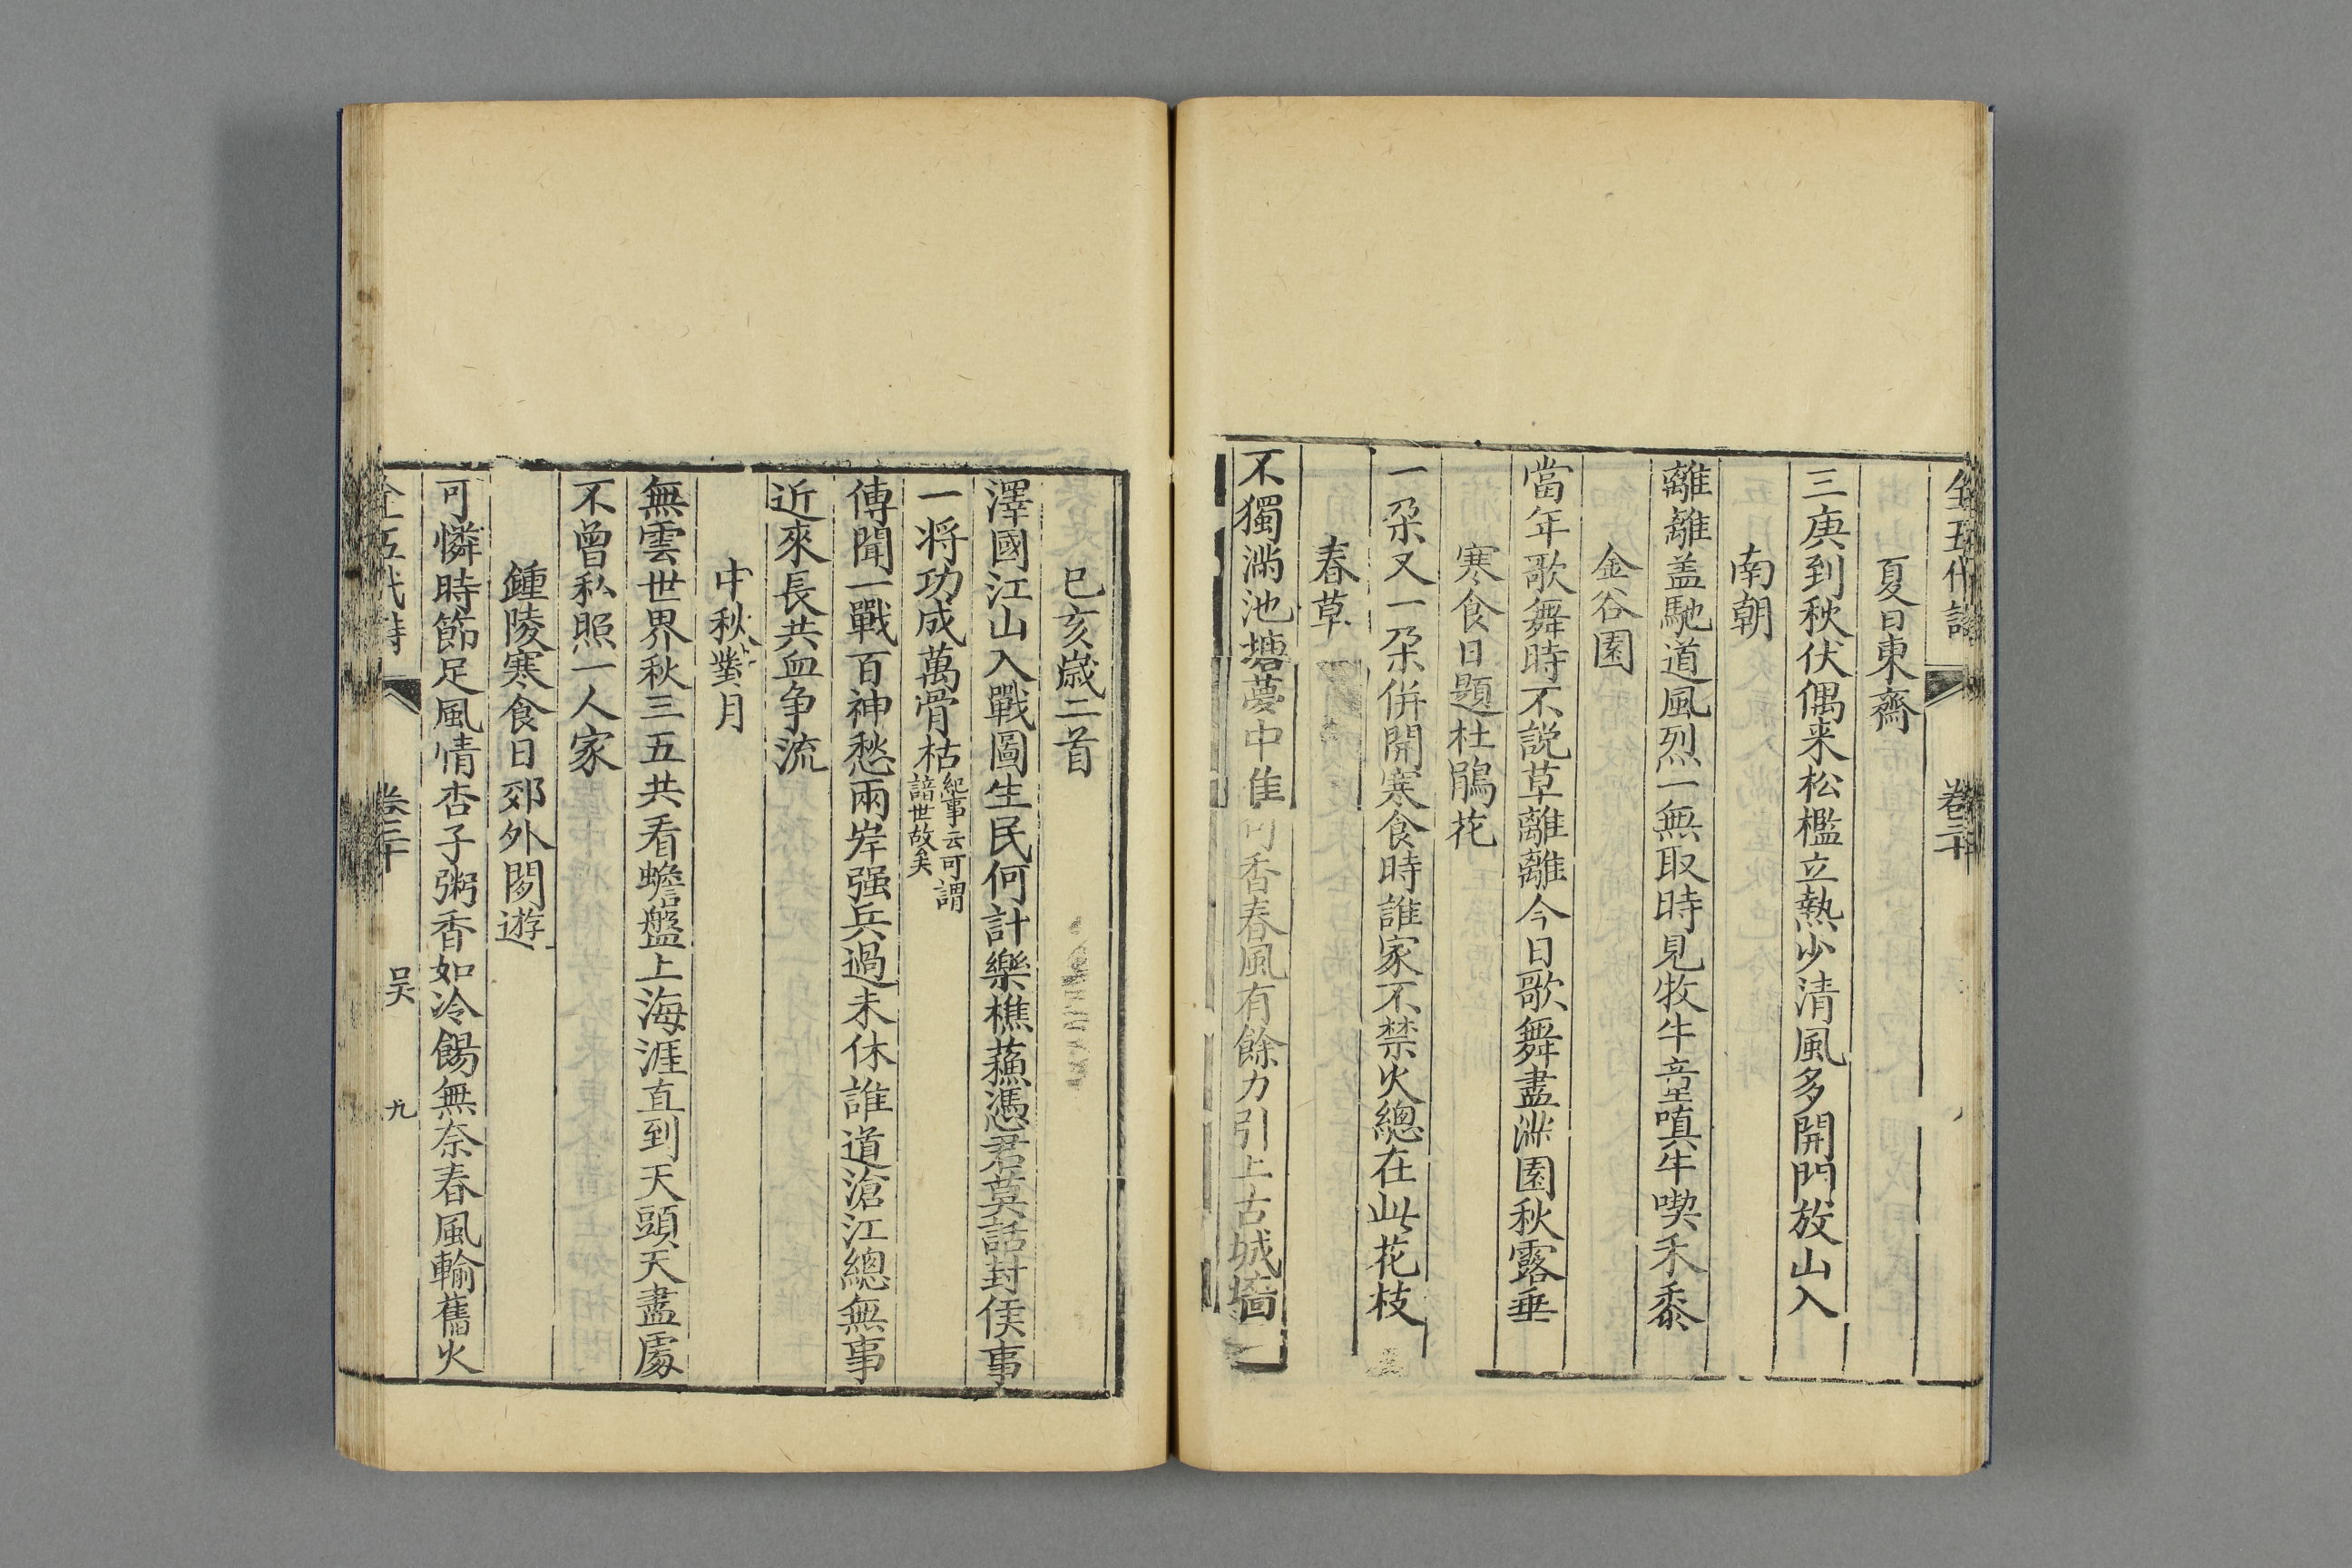 全五代詩 卷三十
夏日東齋
三庚到秋伏偶来松檻立熱少清風多開門放山入
南朝
離離盖馳道風烈一無取時見牧牛童嗔牛喫禾黍
金谷園
當年歌舞時不說草離離今日歌舞盡滿園秋露垂
寒食日題杜鵑花
一朶又一朶併開寒食時誰家不禁火總在此花枝
春草
不獨滿池塘夢中佳句香春風有餘力引上古城墻
己亥歲二首
澤國江山入戰圖生民何計樂樵蘓憑君莫話封侯事
一将功成萬骨枯紀事云可謂
諳世故矣
傳聞一戰百神愁兩岸强兵過未休誰道滄江總無事
近來長共血争流
中秋對月
無雲世界秋三五共看蟾盤上海涯直到天頭天盡處
不曾私照一人家
鍾陵寒食日郊外閒遊
可憐時節足風情杏子粥香如冷餳無奈春風輸舊火
全五代詩 卷三十 吴 九